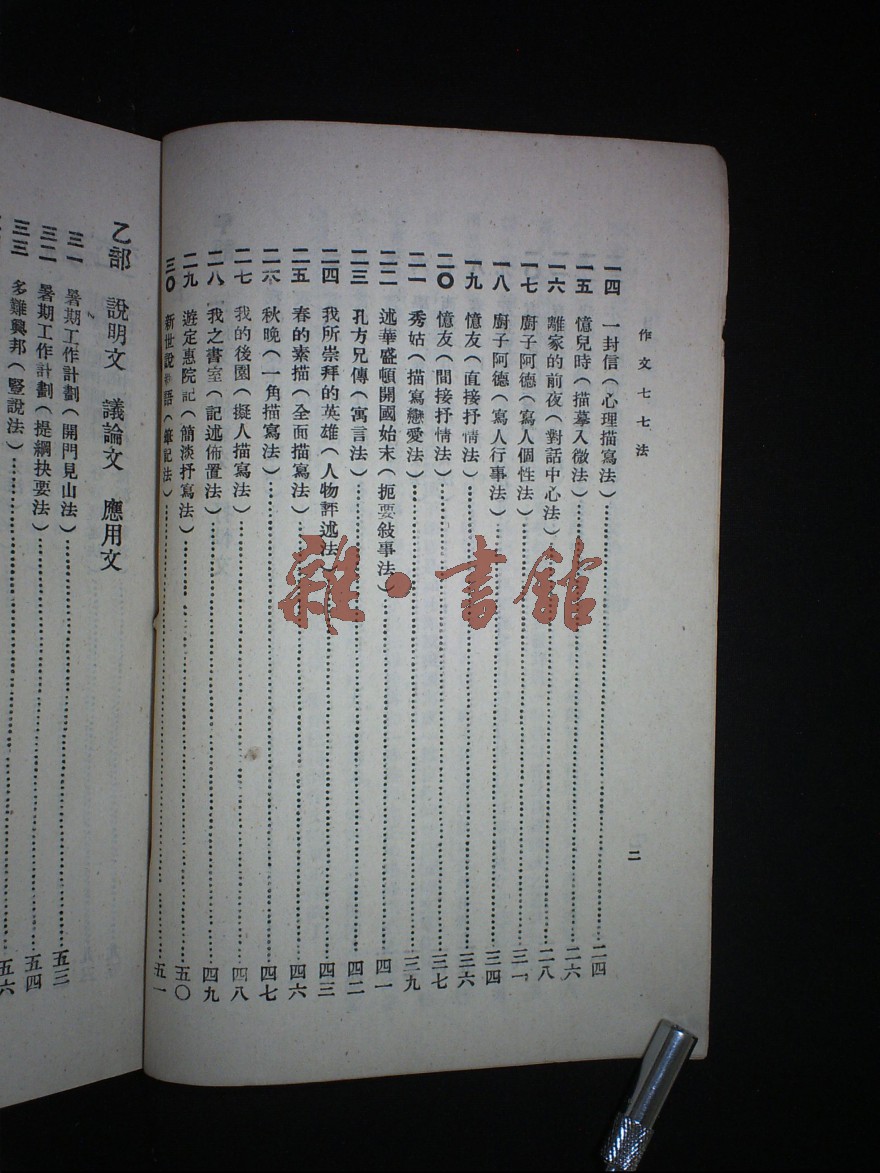 作文七七法
二
一四 一封信(心理描寫法)……二四
一五 憶兒時(描摹入微法)……二六
一六 離家的前夜(對話中心法)……二八
一七 廚子阿德(寫人個性法)……三一
一八 廚子阿德(寫人行事法)……三四
一九 憶友(直接抒情法)……三六
二〇 憶友(間接抒情法)……三七
二一 秀姑(描寫戀愛法)……三九
二二 述華盛頓開國始末(扼要敍事法)……四一
二三 孔方兄傳(寓言法)……四二
二四 我所崇拜的英雄(人物評述法)……四三
二五 春的素描(全面描寫法)……四六
二六 秋晚(一角描寫法)……四七
二七 我的後園(擬人描寫法)……四八
二八 我之書室(記述佈置法)……四九
二九 遊定惠院記(簡淡抒寫法)……五〇
三〇 新世說 語(筆記法)……五一
乙部 說明文 議論文 應用文
三一 暑期工作計劃(開門見山法)……五三
三二 暑期工作計劃(提綱抉要法)……五四
三三 多難興邦(豎說法)……五六
雜·書館